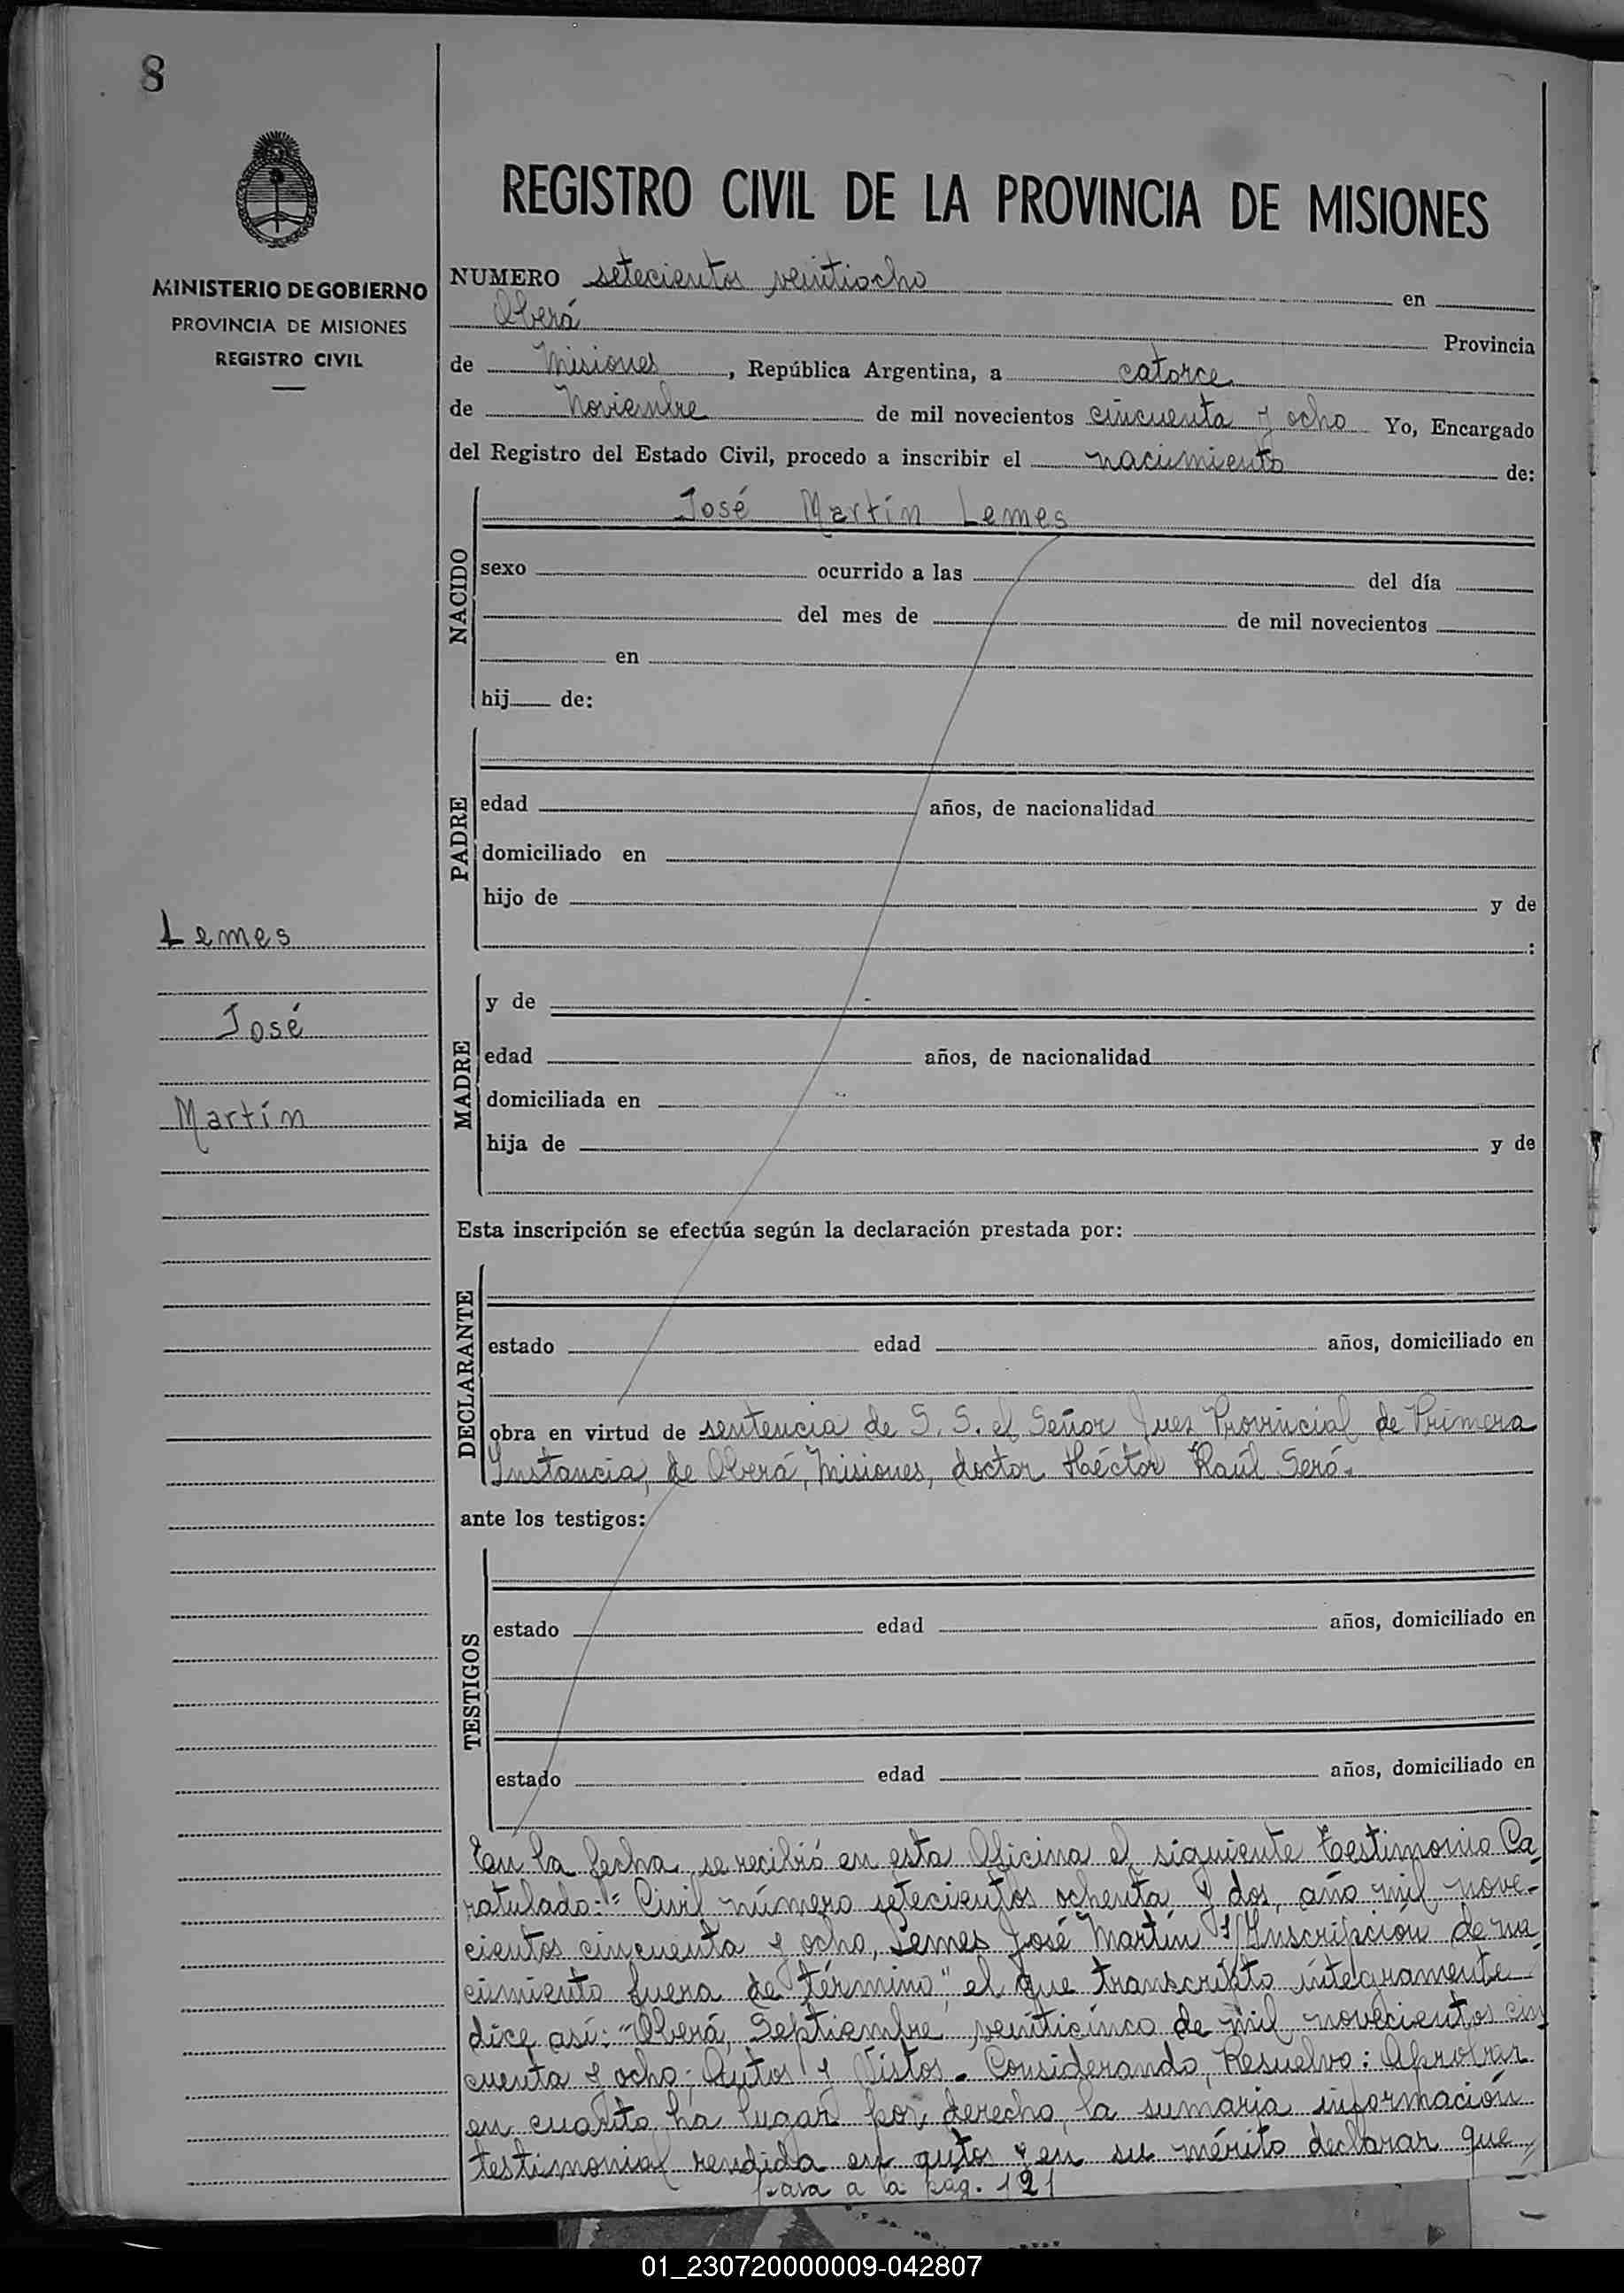 8
MINISTERIO DE GOBIERNO
PROVINCIA DE MISIONES
REGISTRO CIVIL
REGISTRO CIVIL DE LA PROVINCIA DE MISIONES
NUMERO setecientos veintiocho en
Oberá Provincia
de Misiones, República Argentina, a catorce
de Noviembre de mil novecientos cincuenta y ocho Yo, Encargado
del Registro del Estado Civil, procedo a inscribir el nacimiento de:
NACIDO
José Martín Lemes
sexo ocurrido a las del día
del mes de de mil novecientos
en
hij de:
PADRE
edad años, de nacionalidad
domiciliado en
hijo de y de
:
Lemes
José
Martín
MADRE
y de
edad años, de nacionalidad
domiciliada en
hija de y de
Esta inscripción se efectúa según la declaración prestada por:
DECLARANTE
estado edad años, domiciliado en
obra en virtud de sentencia de S. S. el Señor Juez Provincial de Primera
Instancia, de Oberá, Misiones, doctor Héctor Raúl Seró.
ante los testigos:
TESTIGOS
estado edad años, domiciliado en
estado edad años, domiciliado en
En la fecha se recibió en esta Oficina el siguiente testimonio Ca
ratulado: "Civil número setecientos ochenta y dos, año mil nove-
cientos cincuenta y ocho, Lemes José Martín S/Inscripción de na
cimiento fuera de término" el que transcripto íntegramente
dice así: "Oberá, Septiembre veinticinco de mil novecientos cin
cuenta y ocho. Autos y Vistos. Considerando, Resuelvo: Aprobar
en cuanto ha lugar por derecho, la sumaria información
testimonial rendida en autos y en su mérito declarar que
pasa a la pág. 121
01_230720000009-042807